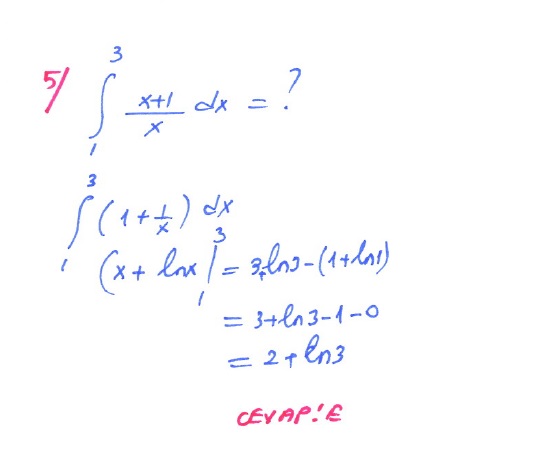 5/ ∫₁³ (x+1)/x dx = ?
∫₁³ (1+1/x) dx
(x + lnx |₁³ = 3+ln3-(1+ln1)
= 3+ln3-1-0
= 2+ln3
CEVAP: E